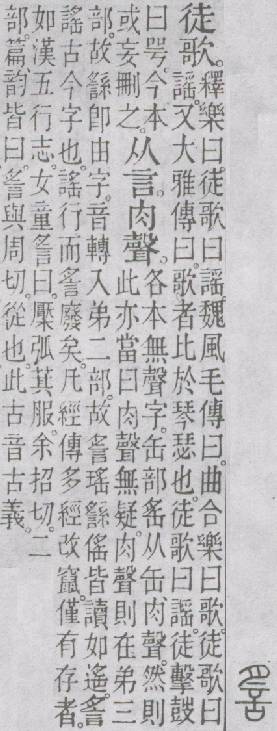 徒歌。
釋樂曰。徒歌曰謠。魏風毛傳曰。曲合樂曰歌。徒歌曰
謠。又大雅傳曰。歌者比於琴瑟也。徒歌曰謠。徒擊鼓
曰咢。今本
或妄刪之。
从言。肉聲。
各本無聲字。缶部䍃从缶肉聲。然則
此亦當曰肉聲無疑。肉聲則在弟三
部。故繇卽由字。音轉入弟二部。故䚻瑤繇傜皆讀如遙。䚻
謠古今字也。謠行而䚻廢矣。凡經傳多經改竄。僅有存者。
如漢五行志。女童䚻曰。檿弧其服。余招切。二
部。篇韵皆曰䚻與周切。從也。此古音古義。